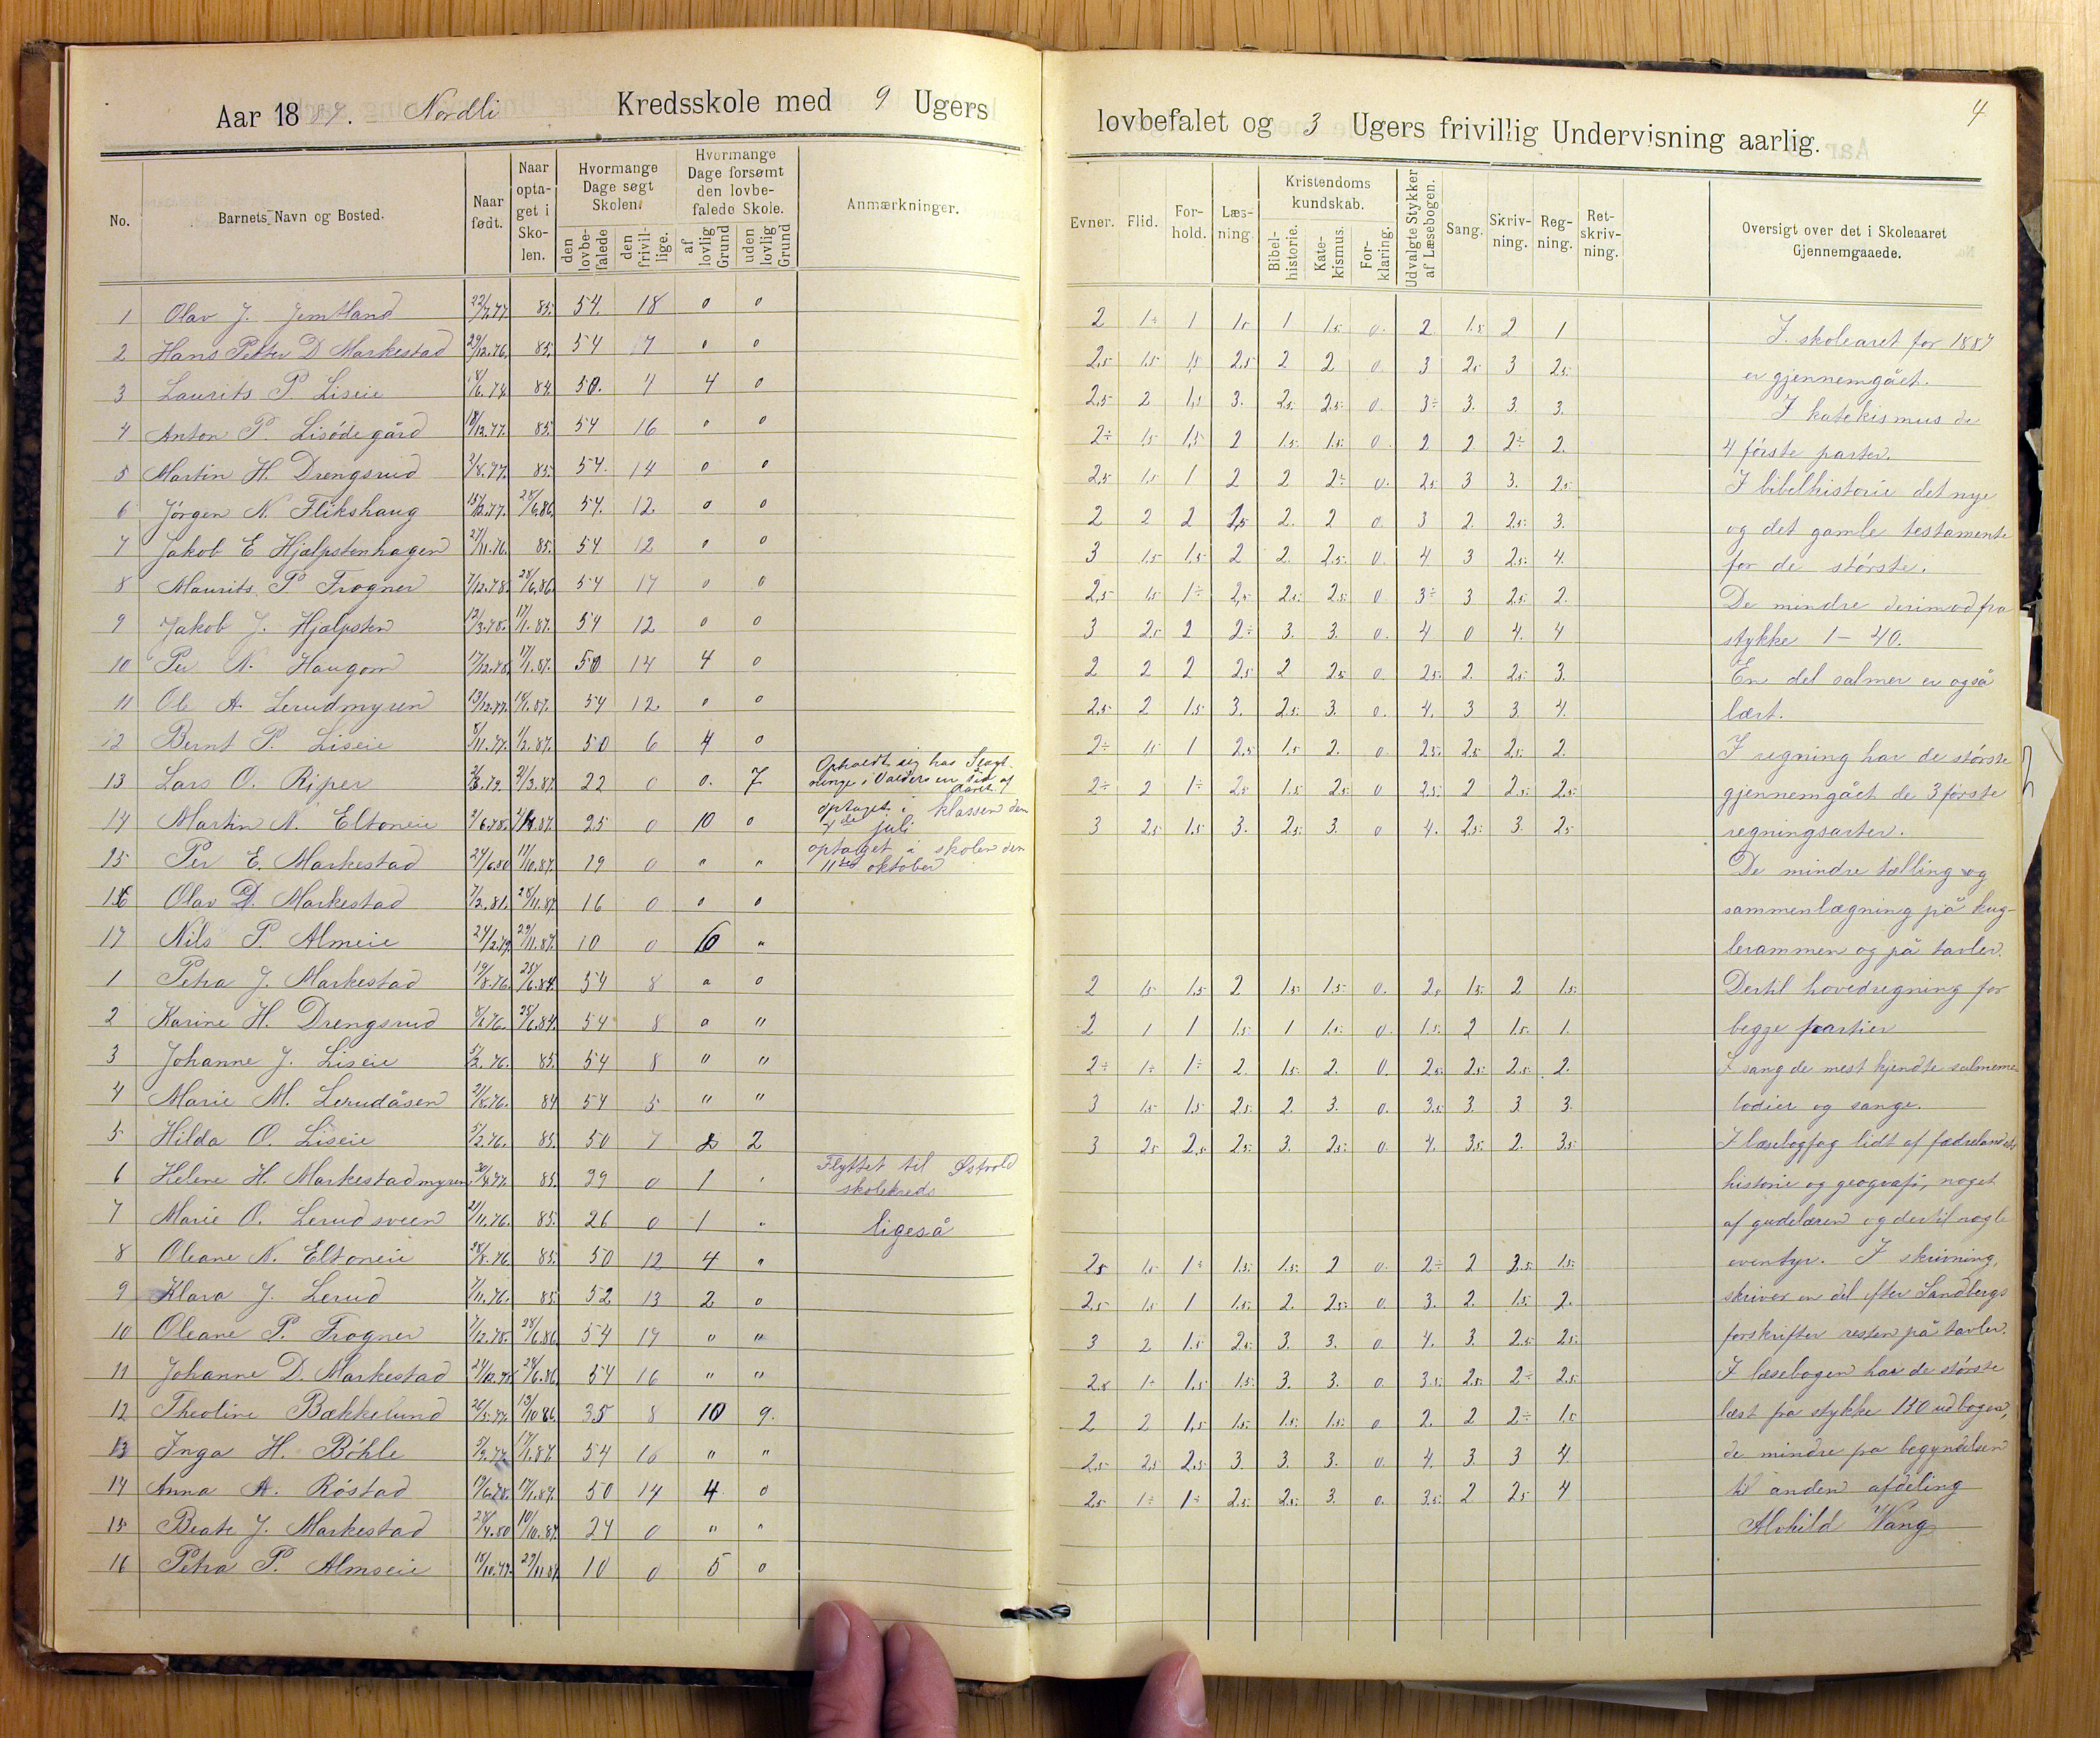 Aar 1887. Nordli Kredsskole med 9 Ugers lovbefalet og 3 Ugers frivillig Undervisning aarlig.
4
No. | Barnets Navn og Bosted. | Naar født. | Naar optaget i Skolen. | Hvormange Dage søgt Skolen: den lovbefalede | den frivillige. | Hvormange Dage forsømt den lovbefalede Skole. af lovlig Grund | uden lovlig Grund | Anmærkninger.
1 Olav J. Jemtland 22/7.77. 85. 54. 18 0 0
2 Hans Petter D Markestad 29/12.76. 85. 54 17 0 0
3 Laurits P. Liseie 84. 50. 7 4 0
4 Anton P. Lisødegård 85. 54 16 0 0
5 Martin H. Drengsrud 2/8.77. 85. 54. 14 0 0
6 Jørgen N. Flikshaug 28/6.86. 54. 12. 0 0
7 Jakob E Hjælpstenhagen 27/11.76. 85. 54 12 0 0
8 Maurits P Frogner 7/12.78. 28/6.86. 54 17 0 0
9 Jakob J. Hjælpsten 12/3.78. 17/1.87. 54 12 0 0
10 Per N. Haugom 17/12.78. 17/1.87. 50 14 4 0
11 Ole A. Lerudmyren 54 12. 0 0
12 Bernt P. Liseie 8/11.77. 1/2.87. 50 6 4 0
13 Lars O. Riper 21/3.87. 22 0 0. 7 Opholdt sig hos Slægtninge i Valders en tid af Aaret
14 Martin N. Eltoneie 2/6.78. 25 0 10 0 optaget i klassen den 4de juli
15 Per E. Markestad 24/6.80 11/10.87. 19 0 " " optaget i skolen den 11te oktober
16 Olav D. Markestad 7/2.81. 28/11.87. 16 0 0 0
17 Nils P. Almeie 24/2.79. 29/11.87. 10 0 6 "
1 Petra J. Markestad 19/8.76. 25/6.84. 54 8 0 0
2 Karine H. Drengsrud 25/6.84. 54 8 0 "
3 Johanne J. Liseie 5/2.76. 85. 54 8 " "
4 Marie M. Lerudåsen 84 54 5 " "
5 Hilda O. Liseie 5/2.76. 85. 50 7 2 2
6 Helene H. Markestadmyren 85. 29 0 1 Flyttet til Østvold skolekreds
7 Marie O. Lerudsveen 21/11.76. 85. 26 0 1 " ligeså
8 Oleane N. Eltoneie 28/8.76 85. 50 12 4 "
9 Klara J. Lerud 7/11.76. 85. 52 13 2 0
10 Oleane P. Frogner 7/12.78. 28/6.86. 54 17 0 "
11 Johanne D. Markestad 24/12.78 28/6.86. 54 16 " "
12 Theoline Bækkelund 26/5.77. 13/10 86. 35 8 10 9.
13 Inga H. Bøhle 5/3.77. 17/1.87 54 16 " "
14 Anna A. Røstad 19/6.78. 17/1.87. 50 14 4 0
15 Beate J. Markestad 28/4.80 10/10.87. 24 0 " "
16 Petra P. Almseie 18/10.77. 29/11.87. 10 0 5 0
Evner. | Flid. | Forhold. | Læsning. | Kristendomskundskab. Bibelhistorie. | Katekismus. | Forklaring. | Udvalgte Stykker af Læsebogen. | Sang. | Skrivning. | Regning. | Retskrivning. | Oversigt over det i Skoleaaret Gjennemgaaede.
2 1÷ 1 1.5 1 1.5 0. 2 1.5 2 1
2,5 1.5 1,5 2.5 2 2 0. 3 2.5 3 2.5.
2,5 2 1,5 3. 2.5. 2.5. 0. 3÷ 3. 3. 3.
2÷ 1.5 1,5 2 1.5. 1.5. 0. 2 2. 2÷ 2.
2,5 1.5 1 2 2 2÷ 0. 2.5. 3 3. 2.5.
2 2 2 1,5 2. 2 0. 3 2. 2.5. 3.
3 1.5 1.5 2 2. 2.5. 0. 4. 3 2.5. 4.
2,5 1.5 1÷ 2,5 2.5. 2.5. 0 3÷ 3 2.5. 2.
3 2.5 2 2÷ 3. 3. 0. 4 0 4. 4
2 2 2 2.5 2 2.5 0. 2.5. 2. 2.5. 3.
2.5 2 1.5 3. 2.5. 3. 0. 4. 3 3. 4.
2÷ 1.5 1 2.5 1.5 2. 0 2.5. 2.5 2.5. 2.
2÷ 2 1÷ 2.5 1.5 2.5 0 2.5. 2 2.5. 2.5.
3 2.5 1.5 3. 2.5. 3. 0 4. 2.5. 3. 2.5
2 1.5 1.5 2 1.5. 1.5. 0. 2.5 1.5. 2 1.5.
2 1 1 1.5. 1 1.5. 0. 1.5. 2 1.5. 1.
2÷ 1÷ 1÷ 2. 1.5. 2. 0. 2.5. 2.5. 2.5. 2.
3 1.5 1.5 2.5 2. 3. 0. 3.5. 3. 3. 3.
3 2.5 2,5 2.5. 3. 2.5. 0. 4. 3.5. 2. 3.5.
2.5 1.5 1÷ 1.5. 1.5. 2 0. 2÷ 2 3.5. 1.5.
2.5 1.5 1 1.5. 2. 2.5. 0. 3. 2. 1.5. 2.
3 2 1.5 2.5. 3. 3. 0. 4. 3 2.5. 2.5.
2.5 1÷ 1,5 1.5. 3. 3. 0. 3.5. 2.5. 2÷ 2.5.
2 2 1,5 1.5. 1.5. 1.5. 0 2. 2 2÷ 1.5
2.5 2,5 2.5 3. 3. 3. 0. 4. 3. 3 4.
2.5 1÷ 1÷ 2.5. 2.5. 3. 0. 3.5. 2 2.5 4
I skolearet for 1887
er gjennemgået.
I katekismus de
4 første parter.
I bibelhistorie det nye
og det gamle testamente
for de største.
De mindre derimod fra
stykke 1 - 40.
En del salmer er også
lært.
I regning har de største
gjennemgået de 3 første
regningsarter.
De mindre tælling og
sammenlægning på kug-
lerammen og på tavler.
Dertil hovedregning for
begge partier
I sang de mest kjendte salmeme-
lodier og sange.
I læsebogfag lidt af fædrelandets
historie og geografi, noget
af gudelæren og dertil nogle
eventyr. I skrivning,
skriver en del efter Sandbergs
forskrifter resten på tavler.
I læsebogen har de største
læst fra stykke 130 ud bogen,
de mindre fra begyndelsen
til anden afdeling
Alvhild Vang